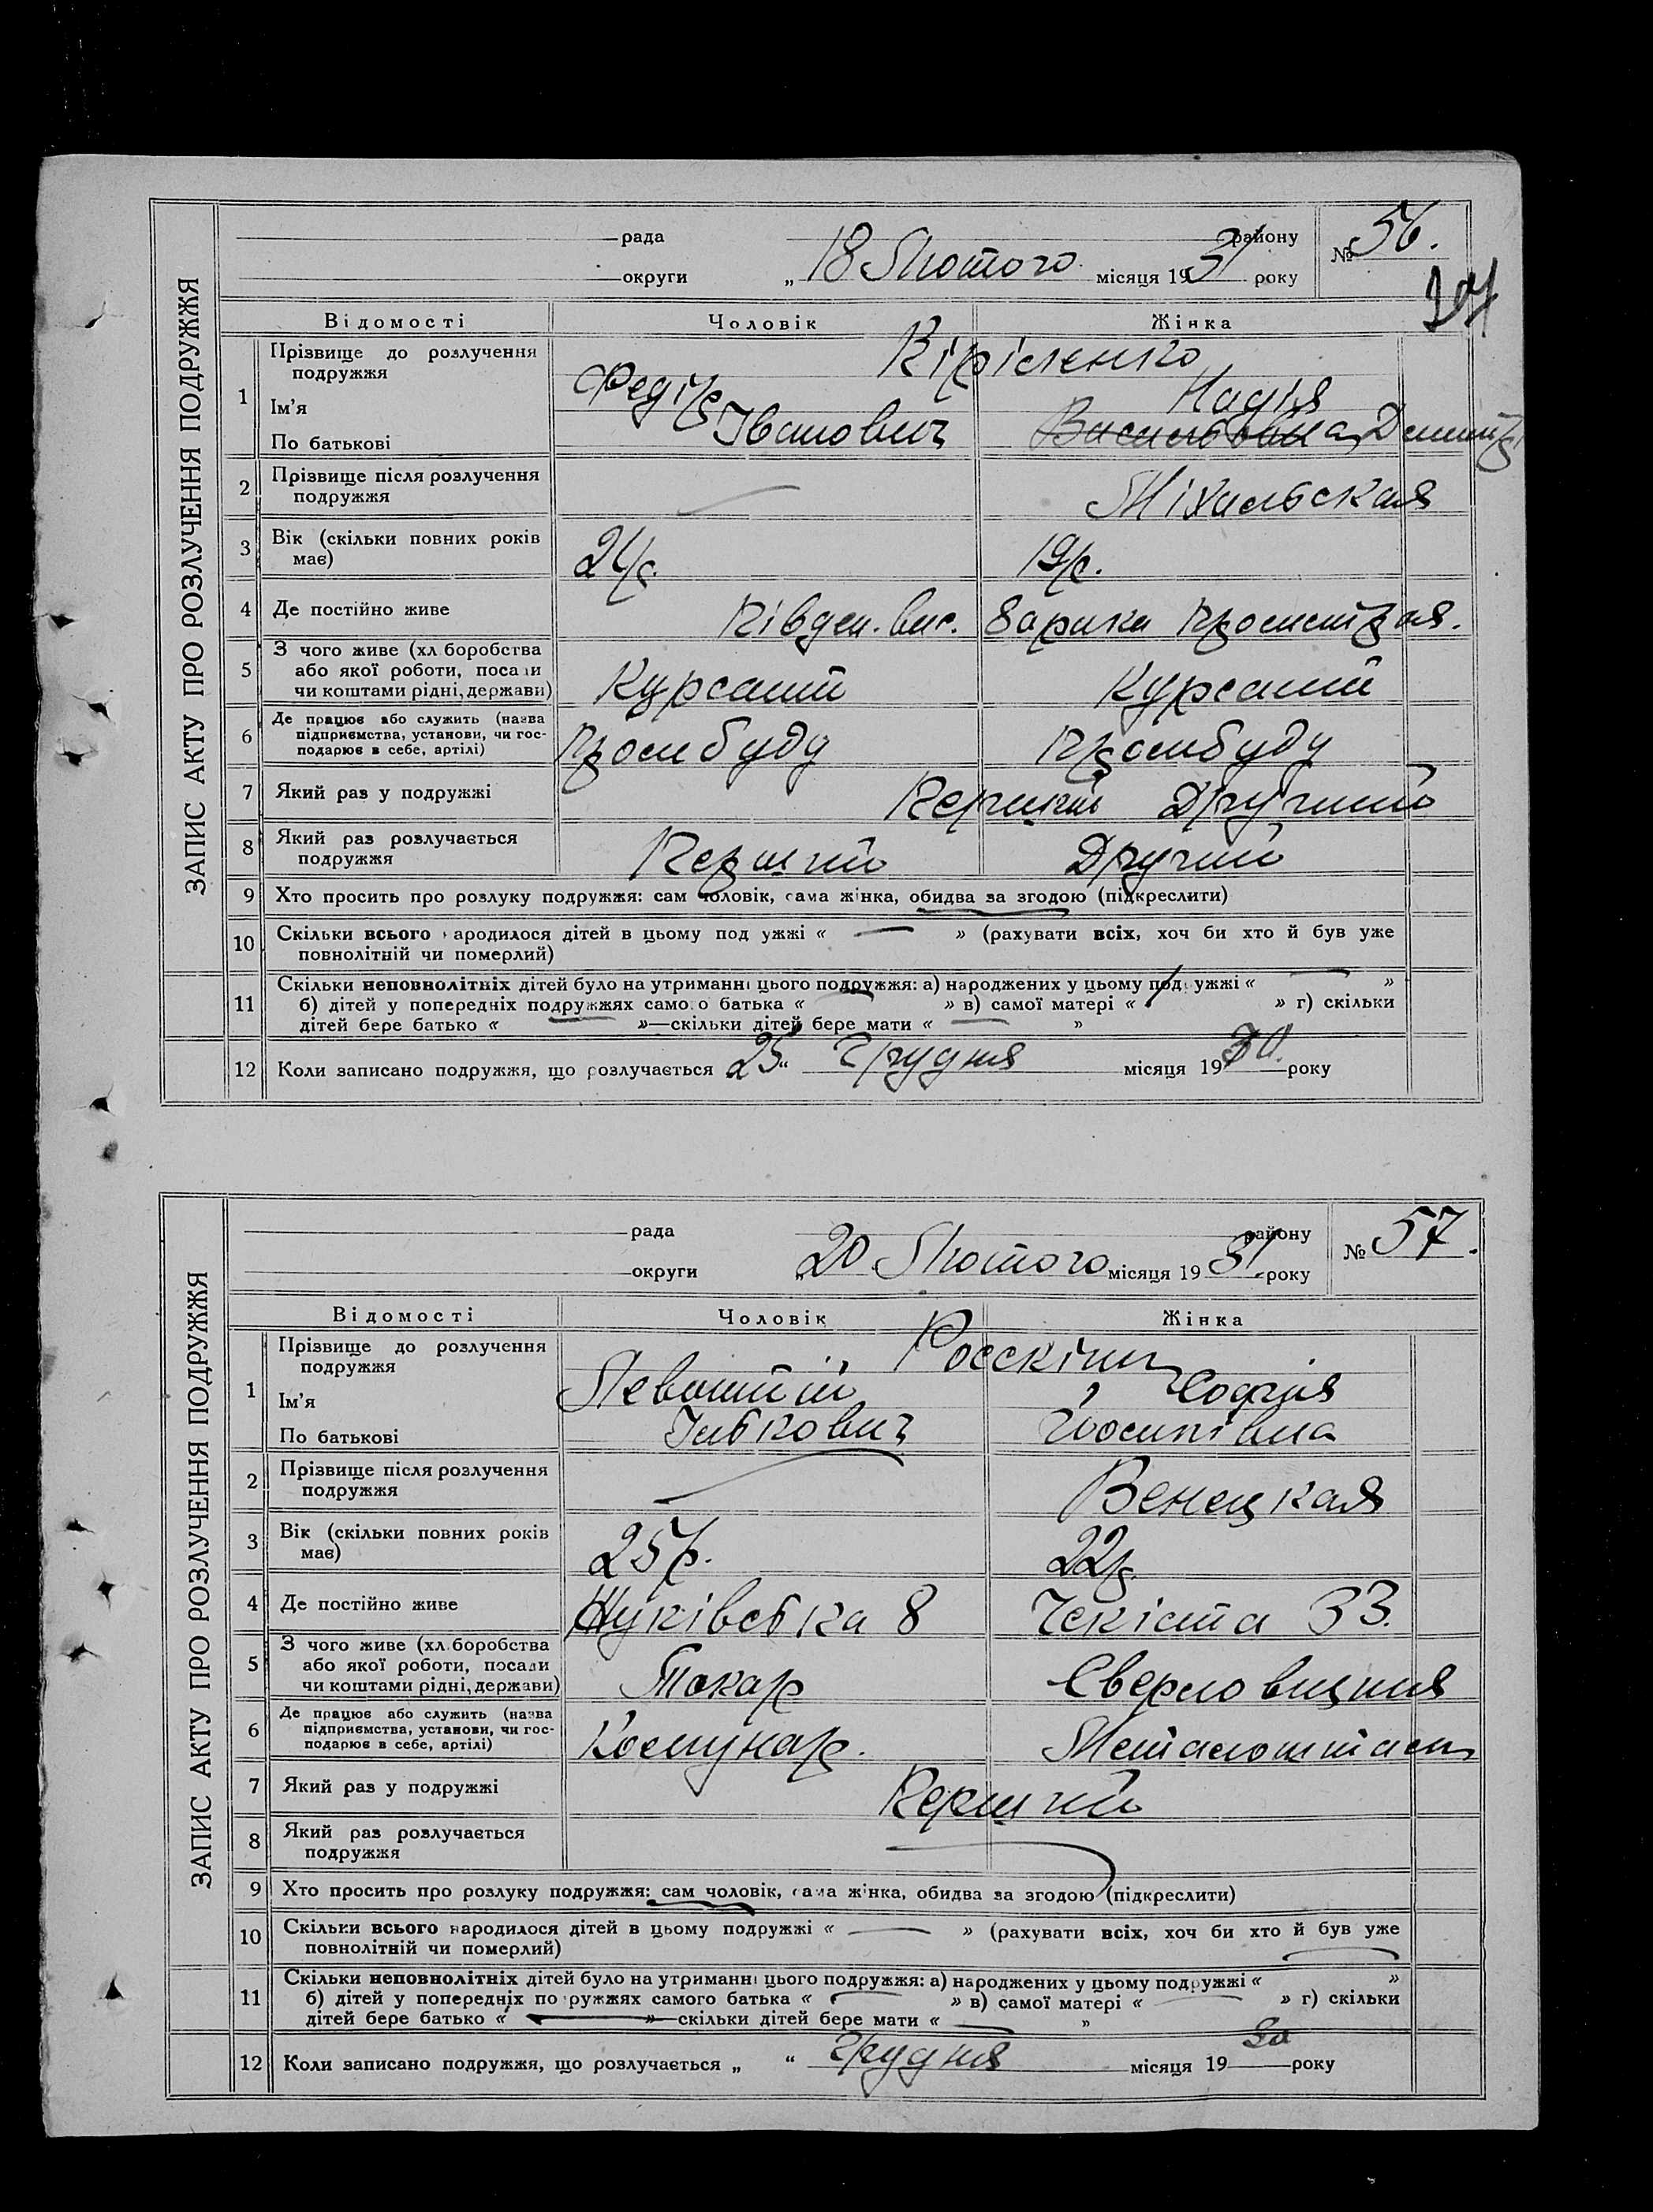 ЗАПИС АКТУ ПРО РОЗЛУЧЕННЯ ПОДРУЖЖЯ
рада району № 56.
округи „ 18 Лютого місяця 1931 року
Відомості Чоловік Жінка
1 Прізвище до розлучення подружжя Кірієнко
Ім'я Федір Надія
По батькові Іванович Васильовна
2 Прізвище після розлучення подружжя — Міхальская
3 Вік (скільки повних років має) 19р.
4 Де постійно живе Півден. вис.
5 З чого живе (хл боробства
або якої роботи, посади
чи коштами рідні, держави) Курсант Курсант
6 Де працює або служить (назва
підприємства, установи, чи гос-
подарює в себе, артілі) Промбуду Промбуду
7 Який раз у подружжі Перший Другий
8 Який раз розлучається подружжя Перший Другий
9 Хто просить про розлуку подружжя: сам чоловік, сама жінка, обидва за згодою (підкреслити)
10 Скільки всього народилося дітей в цьому подружжі « — » (рахувати всіх, хоч би хто й був уже
повнолітній чи померлий)
11 Скільки неповнолітніх дітей було на утриманні цього подружжя: а) народжених у цьому подружжі « — »
б) дітей у попередніх подружжях самого батька « — » в) самої матері « » г) скільки
дітей бере батько « — »—скільки дітей бере мати « — »
12 Коли записано подружжя, що розлучається 25 “ Грудня місяця 1930 року
ЗАПИС АКТУ ПРО РОЗЛУЧЕННЯ ПОДРУЖЖЯ
рада району № 57.
округи „ 20 Лютого місяця 1931 року
Відомості Чоловік Жінка
1 Прізвище до розлучення подружжя Росскін
Ім'я Софія
По батькові Йосипівна
2 Прізвище після розлучення подружжя — Венецкая
3 Вік (скільки повних років має) 25р. 22р.
4 Де постійно живе 8 Чекіста 33.
5 З чого живе (хл боробства
або якої роботи, посади
чи коштами рідні, держави) Токар Сверловщиця
6 Де працює або служить (назва
підприємства, установи, чи гос-
подарює в себе, артілі) Комунар. Металоштамп
7 Який раз у подружжі Перший
8 Який раз розлучається подружжя —
9 Хто просить про розлуку подружжя: сам чоловік, сама жінка, обидва за згодою (підкреслити)
10 Скільки всього народилося дітей в цьому подружжі « — » (рахувати всіх, хоч би хто й був уже
повнолітній чи померлий)
11 Скільки неповнолітніх дітей було на утриманні цього подружжя: а) народжених у цьому подружжі « — »
б) дітей у попередніх подружжях самого батька « — » в) самої матері « — » г) скільки
дітей бере батько « — »—скільки дітей бере мати « — »
12 Коли записано подружжя, що розлучається „ “ Грудня місяця 1930 року